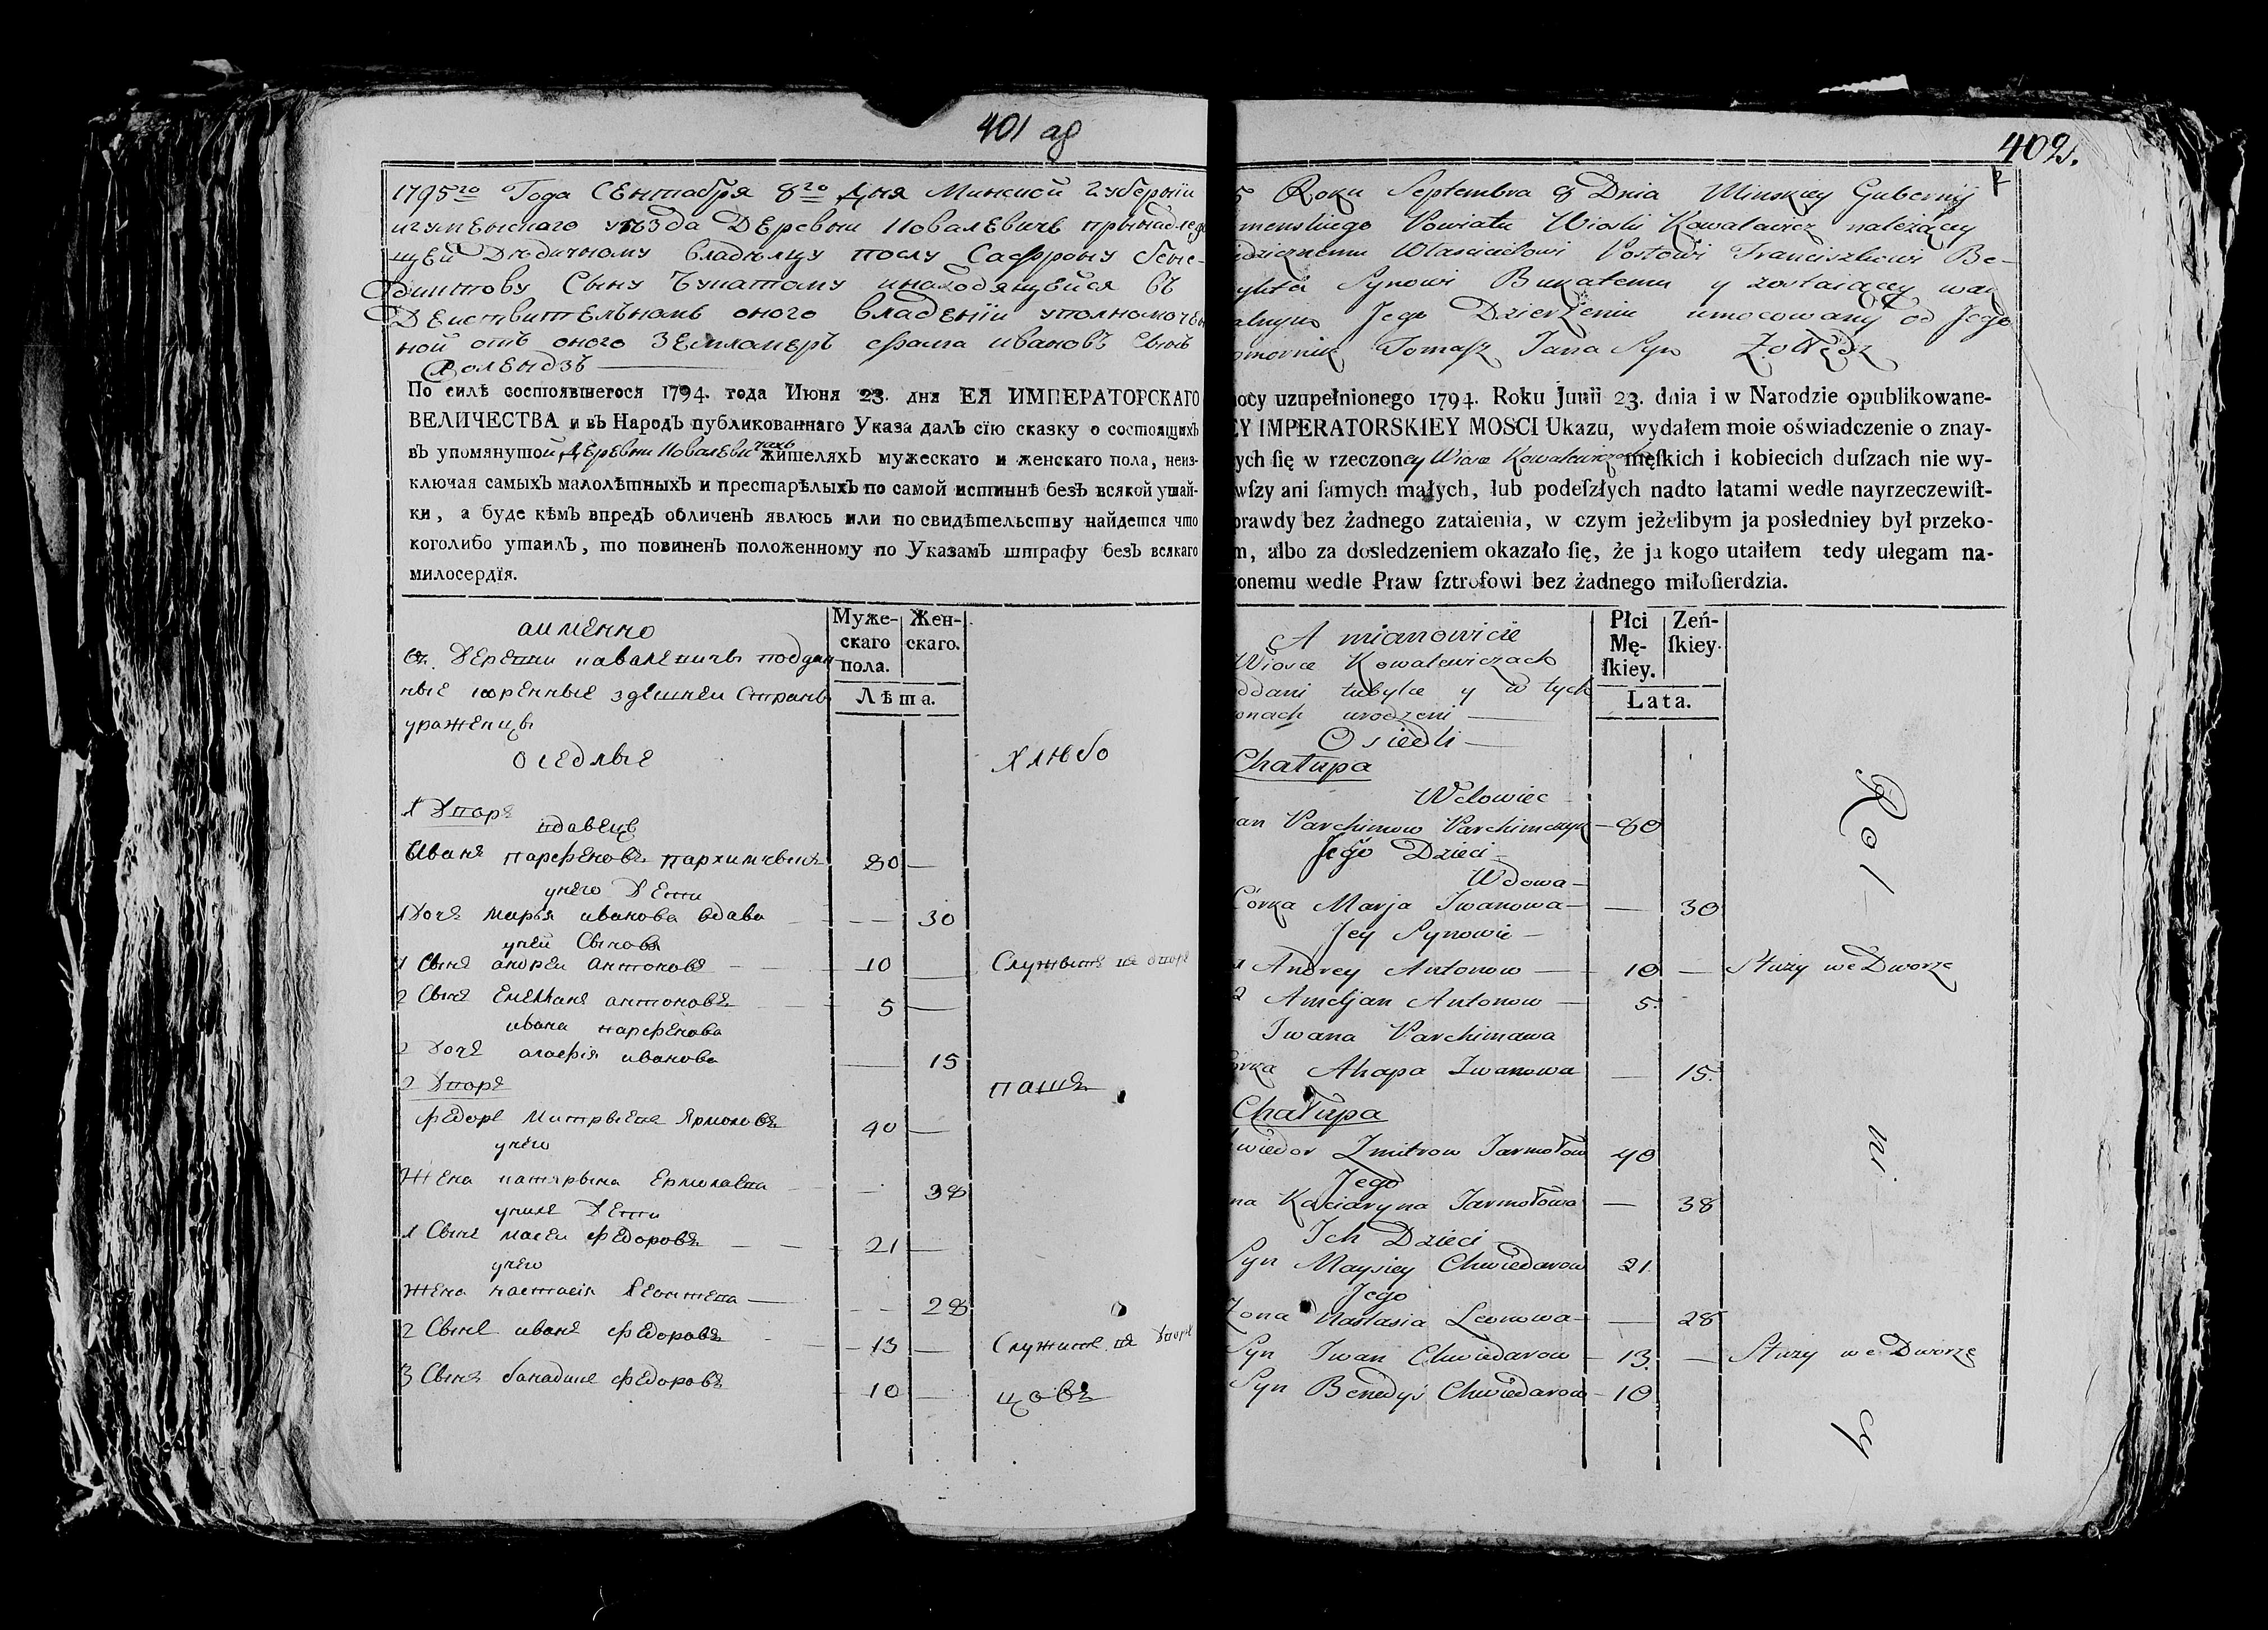 401 об
1795го Года Сентября 8го Дня Минской Губернiи
игуменского уезда Деревни Ковалевичь принадле
щей Дедичному владельцу послу
Сыну Букатому инаходящейся въ
Деиствительномъ оного владенiи уполномоче
ной отъ оного Землемеръ фома ивановъ Сынъ
Жолендзь
По силѣ состоявшегося 1794. года Июня 23. дня ЕЯ ИМПЕРАТОРСКАГО
ВЕЛИЧЕСТВА и въ Народъ публикованнаго Указа далъ сїю сказку о состоящихъ
въ упомянутой Деревни Ковалевичахъ жителяхъ мужескаго и женскаго пола, неиз-
ключая самыхъ малолѣтныхъ и престарѣлыхъ по самой истиннѣ безъ всякой утай-
ки, а буде кѣмъ впредь обличенъ явлюсь или по свидѣтельству найдется что
коголибо утаилъ, то повиненъ положенному по Указамъ штрафу безъ всякаго
милосердїя.
аименно
Муже-
скаго
пола.
Жен-
скаго.
Лѣта.
въ Деревни ковалевичь поддан
ные коренные здешнеи Страны
ураженцы
оседлые
хлюбо
1 Дворъ
вдавецъ
Иванъ парфеновъ пархимчвикъ 80 —
унего Дети
1 Дочь марья иванова вдава — 30
унеи Сынова
1 Сынъ андреи антоновъ 10 — Служыть на дворе
2 Сынъ Емелянъ антоновъ 5 —
ивана парфенова
2 Дочь агафiя иванова — 15
2 Дворъ
пашъ
федоръ Митрыевъ Ярмоловъ 40 —
унего
Жена катярына Ермолаева — 38
унихъ Дети
1 Сынъ масеи федоровъ 21 —
унего
жена настасiя Леонтева — 28
2 Сынъ иванъ федоровъ 13 — Служить на Дворе
3 Сынъ банадысь федоровъ 10 — цовъ
402.
5 Roku Septembra 8 Dnia Minskiey Gubernij
menskiego Powiatu Wioski Kowalewicz należącey
dzicznemu Włascicielowi Posłowi Franciszkowi Be-
Synowi Bukatemu y zostaiącey w
alnym Jego Dzierżeniu umocowany od Jego
omornik Tomasz Jana Syn Żołędz
ocy uzupełnionego 1794. Roku Junii 23. dnia i w Narodzie opublikowane-
EY IMPERATORSKIEY MOSCI Ukazu, wydałem moie oświadczenie o znay-
ych ſię w rzeczoney Wiosce Kowalewiczach męſkich i kobiecich duſzach nie wy-
wſzy ani ſamych małych, lub podeſzłych nadto latami wedle nayrzeczewiſt-
prawdy bez żadnego zataienia, w czym jeżelibym ja posledniey był przeko-
m, albo za dosledzeniem okazało ſię, że ja kogo utaiłem tedy ulegam na-
zonemu wedle Praw ſztrofowi bez żadnego miłoſierdzia.
A mianowicie
Płci
Mę-
ſkiey.
Żeń-
ſkiey.
Lata.
Wiosce Kowalewiczach
ddani tubylce y w tych
onach urodzeni
Osiedli
Chałupa
Wdowiec
an Parchimow Parchimczyk 80
Jego Dzieci
Wdowa
Córka Marja Iwanowa — 30
Jey Synowie
1 Andrey Antonow 10 — Służy we Dworze
2 Ameljan Antonow 5.
Iwana Parchimawa
órka Ahapa Iwanowa — 15.
Chałupa
wiedor Zmitrow Jarmołow 40
Jego
na Kaciaryna Jarmołowa — 38
Ich Dzieci
Syn Maysiey Chwiedarow 21.
Jego
Żona Nastasia Leonowa — 28
Syn Iwan Chwiedarow 13 — Służy we Dworze
Syn Benedyś Chwiedarow 10
Rol-
ni-
cy